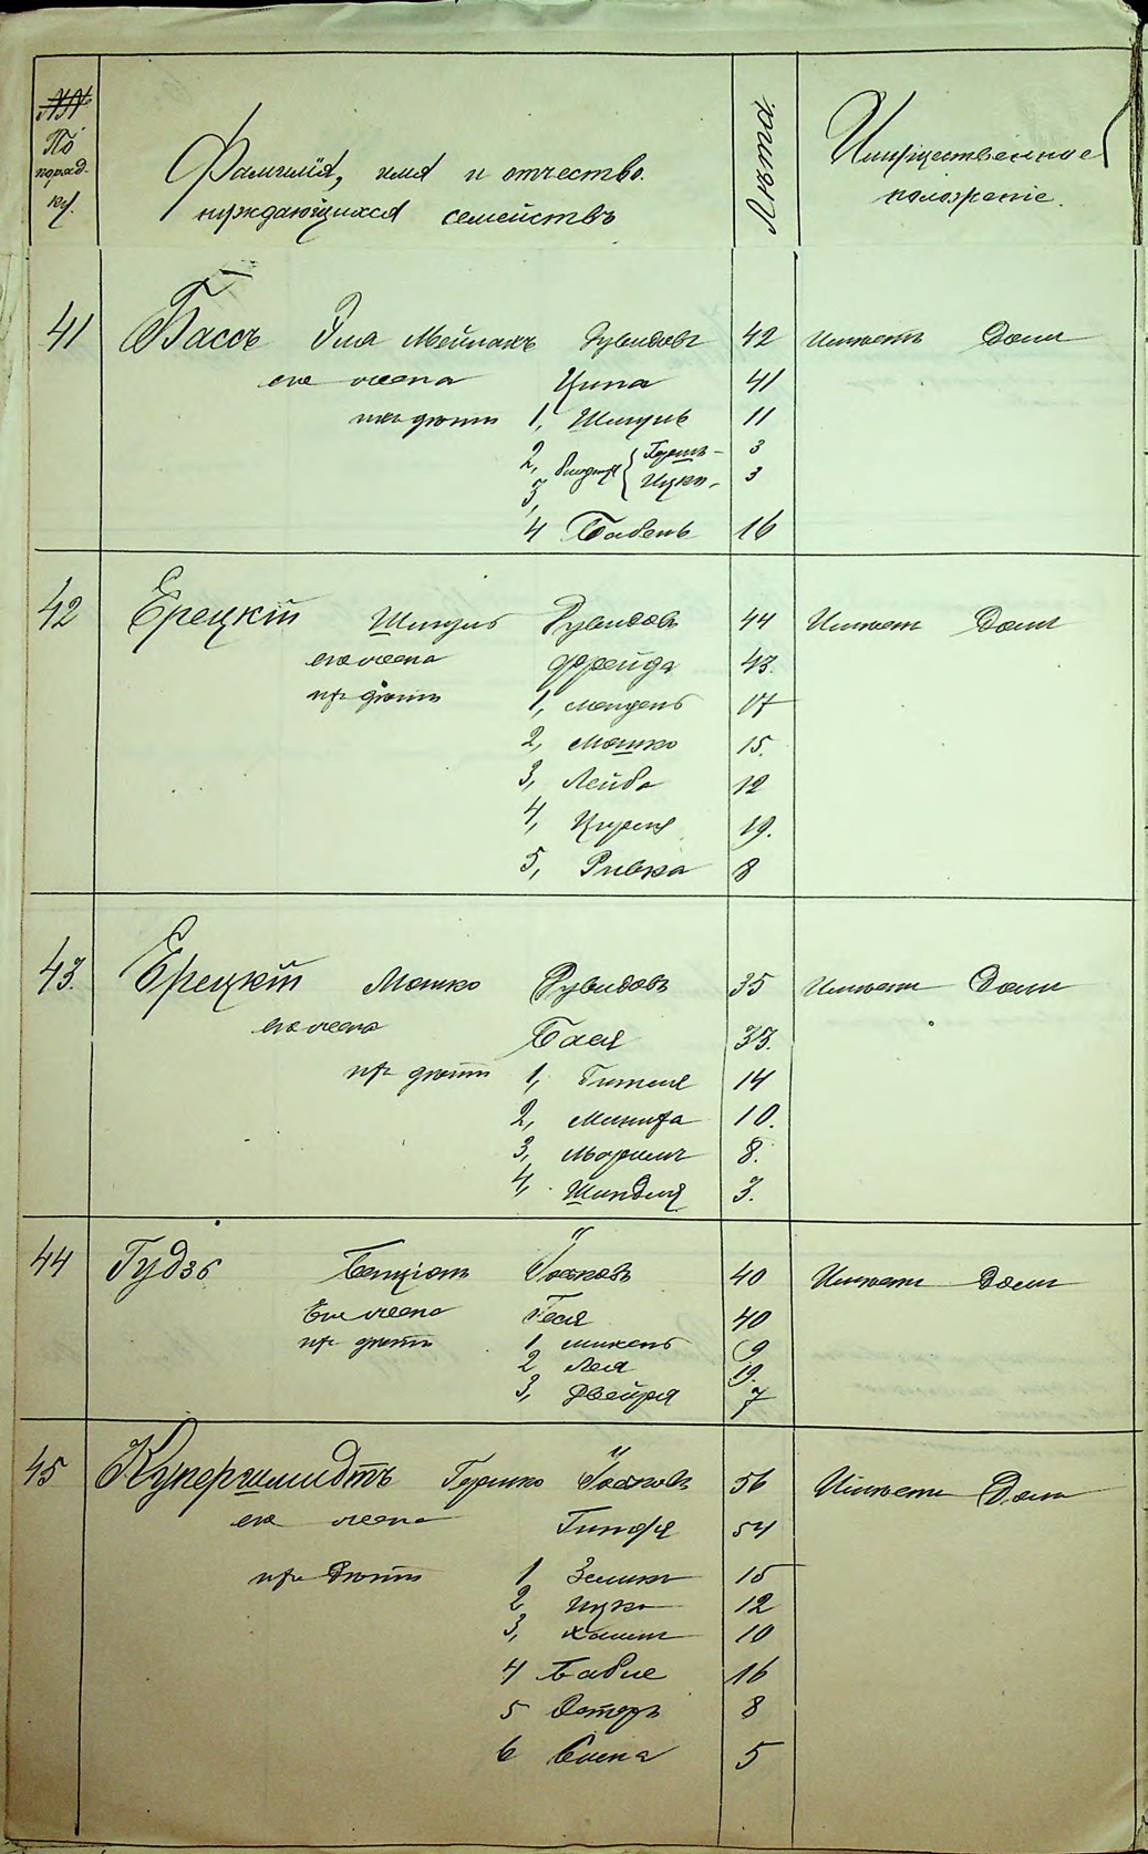 №№ По поряд- ку.
Фамилія, имя и отчество
нуждающихся семействъ
Лѣта.
Имущественное
положеніе.
41 Бассъ Эля Мейлахъ Рувидовъ 42 Имѣетъ Домъ
его жена Ципа 41
ихъ дѣти 1, Шмуль 11
2, близнецы { Гершъ - 3
3, Ицко - 3
4 Бабель 16
42 Ерецкій Шмуль Рувидовъ 44 Имѣетъ Домъ
его жена Фрейда 43.
ихъ дѣти 1, Мендель 17
2, Мошко 15.
3, Лейба 12
4, Цирля 19.
5, Ривка 8
43. Ерецкій Мошко Рувидовъ 35 Имѣетъ Домъ
его жена Бася 33.
ихъ дѣти 1, Гитля 14
2, 10.
3, 8.
4, Шиндля 3.
44 Гудзь Бенціонъ Іосковъ 40 Имѣетъ Домъ
Его жена Геся 40
ихъ дѣти 1 9
2 Лея 19.
3, Двейря 7
45 Купершмидтъ Гершко Іосковъ 56 Имѣетъ Домъ
его жена 54
ихъ Дѣти 1 Зелигъ 15
2, Ицко 12
3, Хаимъ 10
4 Бабле 16
5 Эстеръ 8
6 5